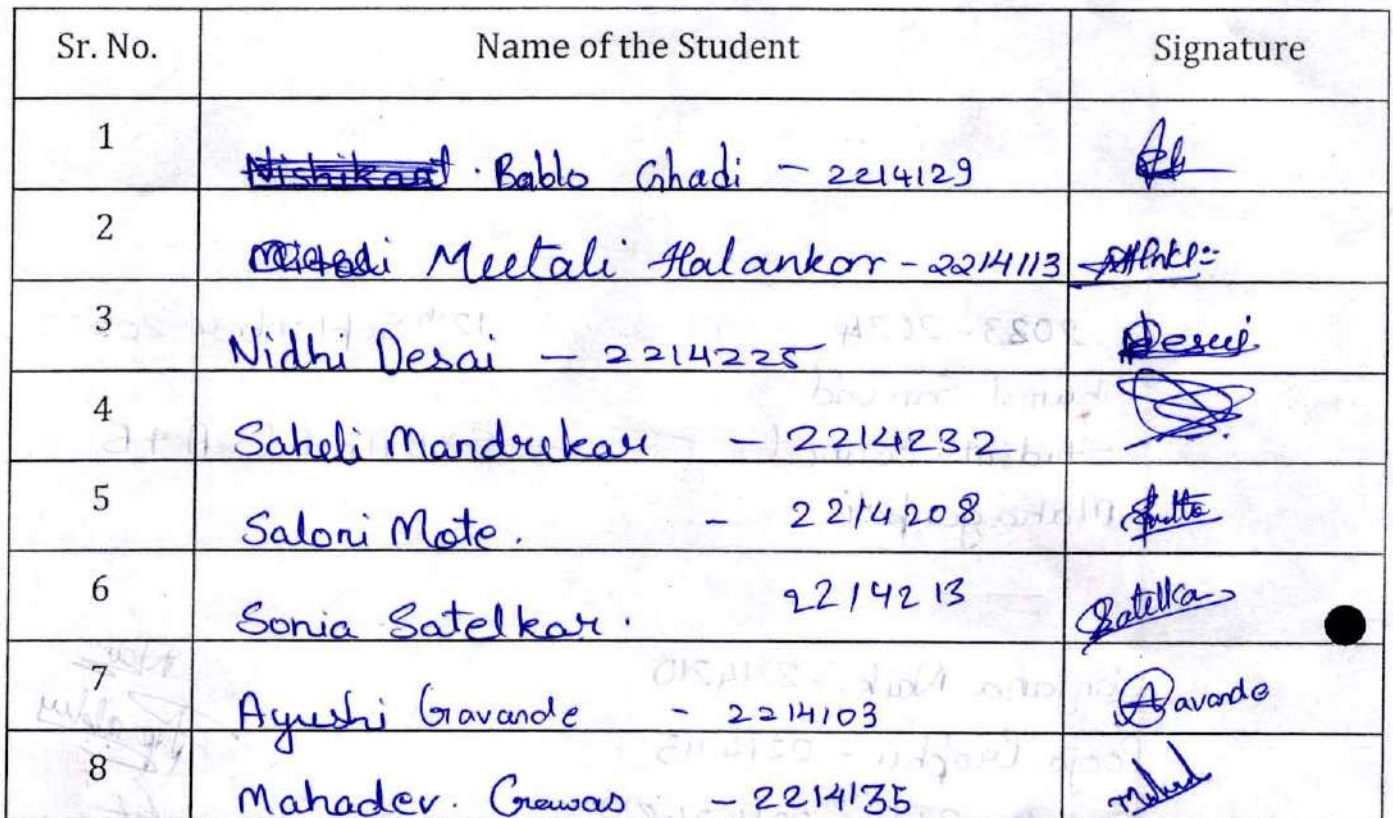 Sr. No. Name of the Student Signature
1 Nishikant. Bablo Ghadi - 2214129
2 Meetali Halankar - 2214113
3 Nidhi Desai - 2214225 Desai
4 Saheli Mandrekar - 2214232
5 Saloni Mote. - 2214208
6 Sonia Satelkar. 2214213 Satelkar
7 Ayushi Gavande - 2214103 Gavande
8 Mahadev. Gawas - 2214135